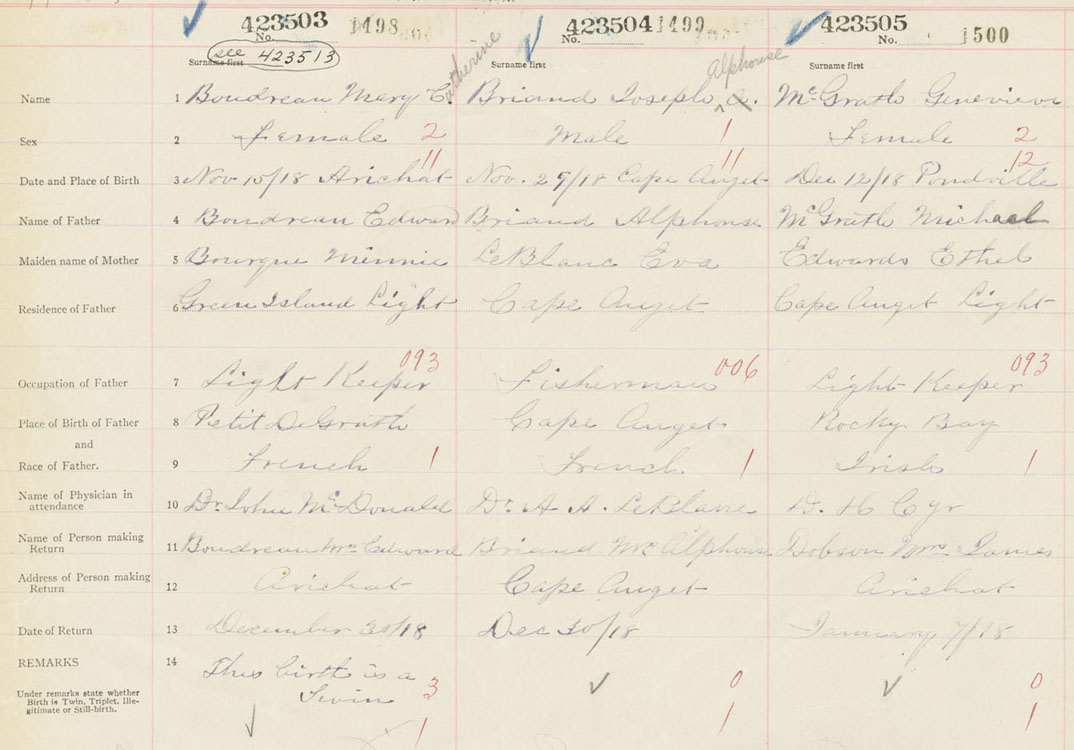 423503 1498 423504 1499 423505 1500
No. No. No.
see 423513
Surname first Surname first Surname first
Catherine Alphouse
Name 1 Boudreau Mary C. Briand Joseph A. McGrath Genevieve
Sex 2 Female 2 Male 1 Female 2
11 11 12
Date and Place of Birth 3 Nov 15/18 Arichat Nov. 29/18 Cape Auget Dec 12/18 Pondville
Name of Father 4 Boudreau Edward Briand Alphouse McGrath Michael
Maiden name of Mother 5 Bourque Minnie LeBlanc Eva Edwards Ethel
Residence of Father 6 Green Island Light Cape Auget Cape Auget Light
093 006 093
Occupation of Father 7 Light Keeper Fisherman Light Keeper
Place of Birth of Father 8 Petit DeGrath Cape Auget Rocky Bay
and
Race of Father. 9 French 1 French 1 Irish 1
Name of Physician in
attendance 10 Dr. John McDonald Dr. A A. LeBlanc D. H Cyr
Name of Person making
Return 11 Boudreau Mrs Edward Briand Mrs Alphouse Dobson Mrs James
Address of Person making
Return 12 Arichat Cape Auget Arichat
Date of Return 13 December 30/18 Dec 30/18 January 7/18
REMARKS 14 This birth is a
Twin 3 0 0
Under remarks state whether
Birth is Twin, Triplet, Ille-
gitimate or Still-birth.
1 1 1